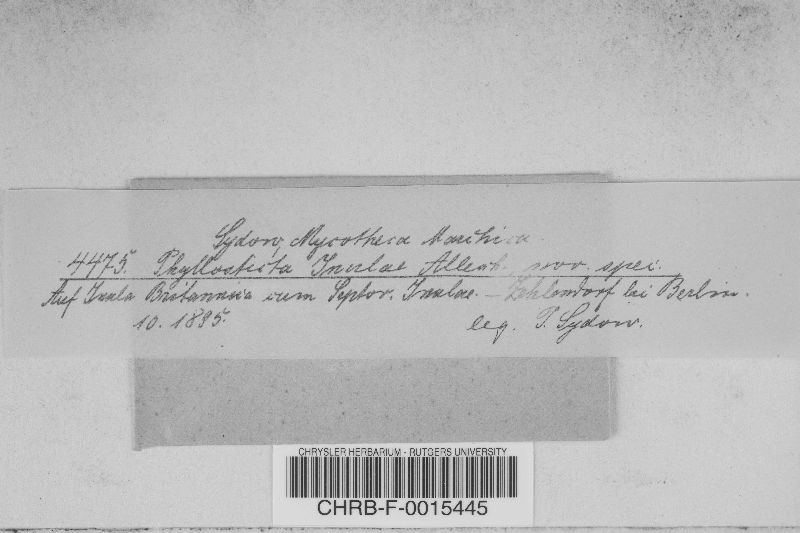 Sydow, Mycotheca Marchica.
4475. Phyllosticta Inulae Allesch. nov. spei.
Auf Inula Britannica cum Septor. Inulae. – Zehlendorf bei Berlin.
10. 1895. leg. P. Sydow.
CHRYSLER HERBARIUM - RUTGERS UNIVERSITY
CHRB-F-0015445